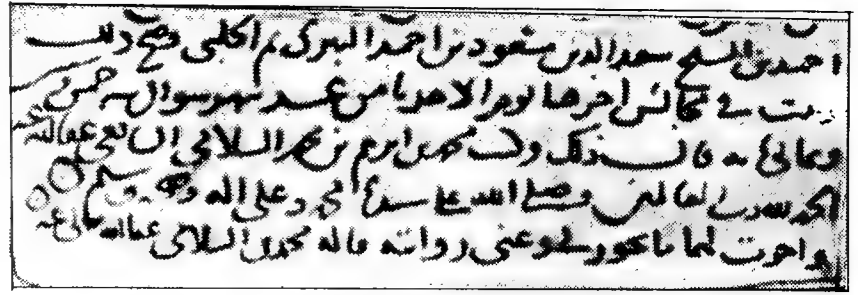 احمد بن الشيخ سعد الدين مسعود بن احمد البركي ثم الحلبي وصح ذلك
وثبت في مجالس اخرها يوم الاحد ثامن عشر شهر شوال سنة خمس
وثمانمائة قال ذلك وكتب محمد بن ابرهيم بن محمد السلامي الشافعي عفا الله عنه
الحمد لله رب العالمين وصلى الله على سيدنا محمد وعلى اله وصحبه وسلم
واجزت لهما ما يجوز لي وعني روايته قاله محمد بن السلامي عفا الله تعالى عنه